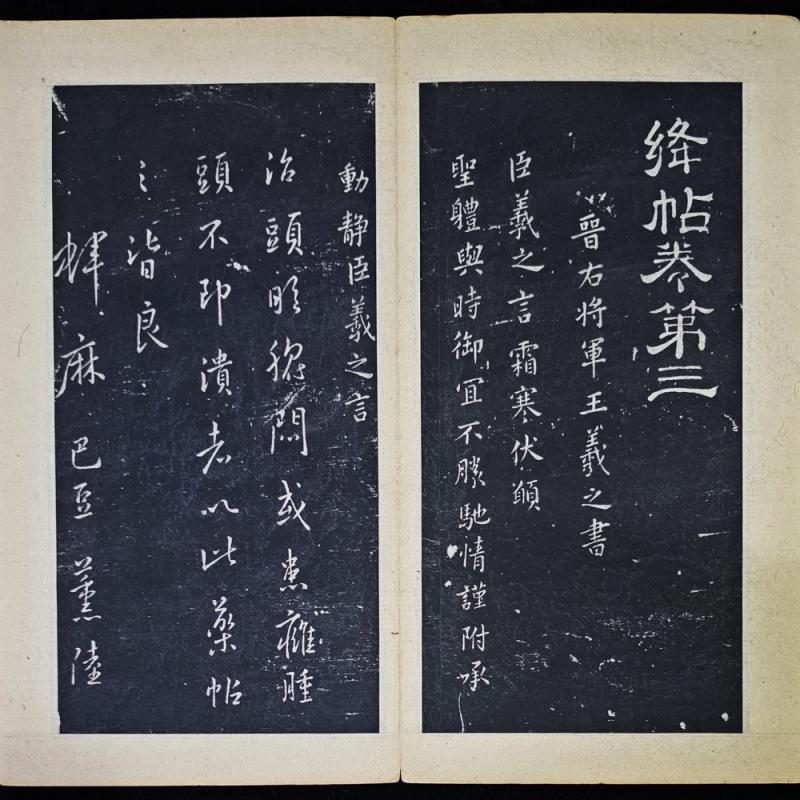 絳帖卷第三
晉右將軍王羲之書
臣羲之言霜寒伏願
聖體與時御宜不勝馳情謹附承
動靜臣羲之言
治頭眩悶或患癰腫
頭不即潰者以此藥帖
之皆良
麻巴豆薰陸